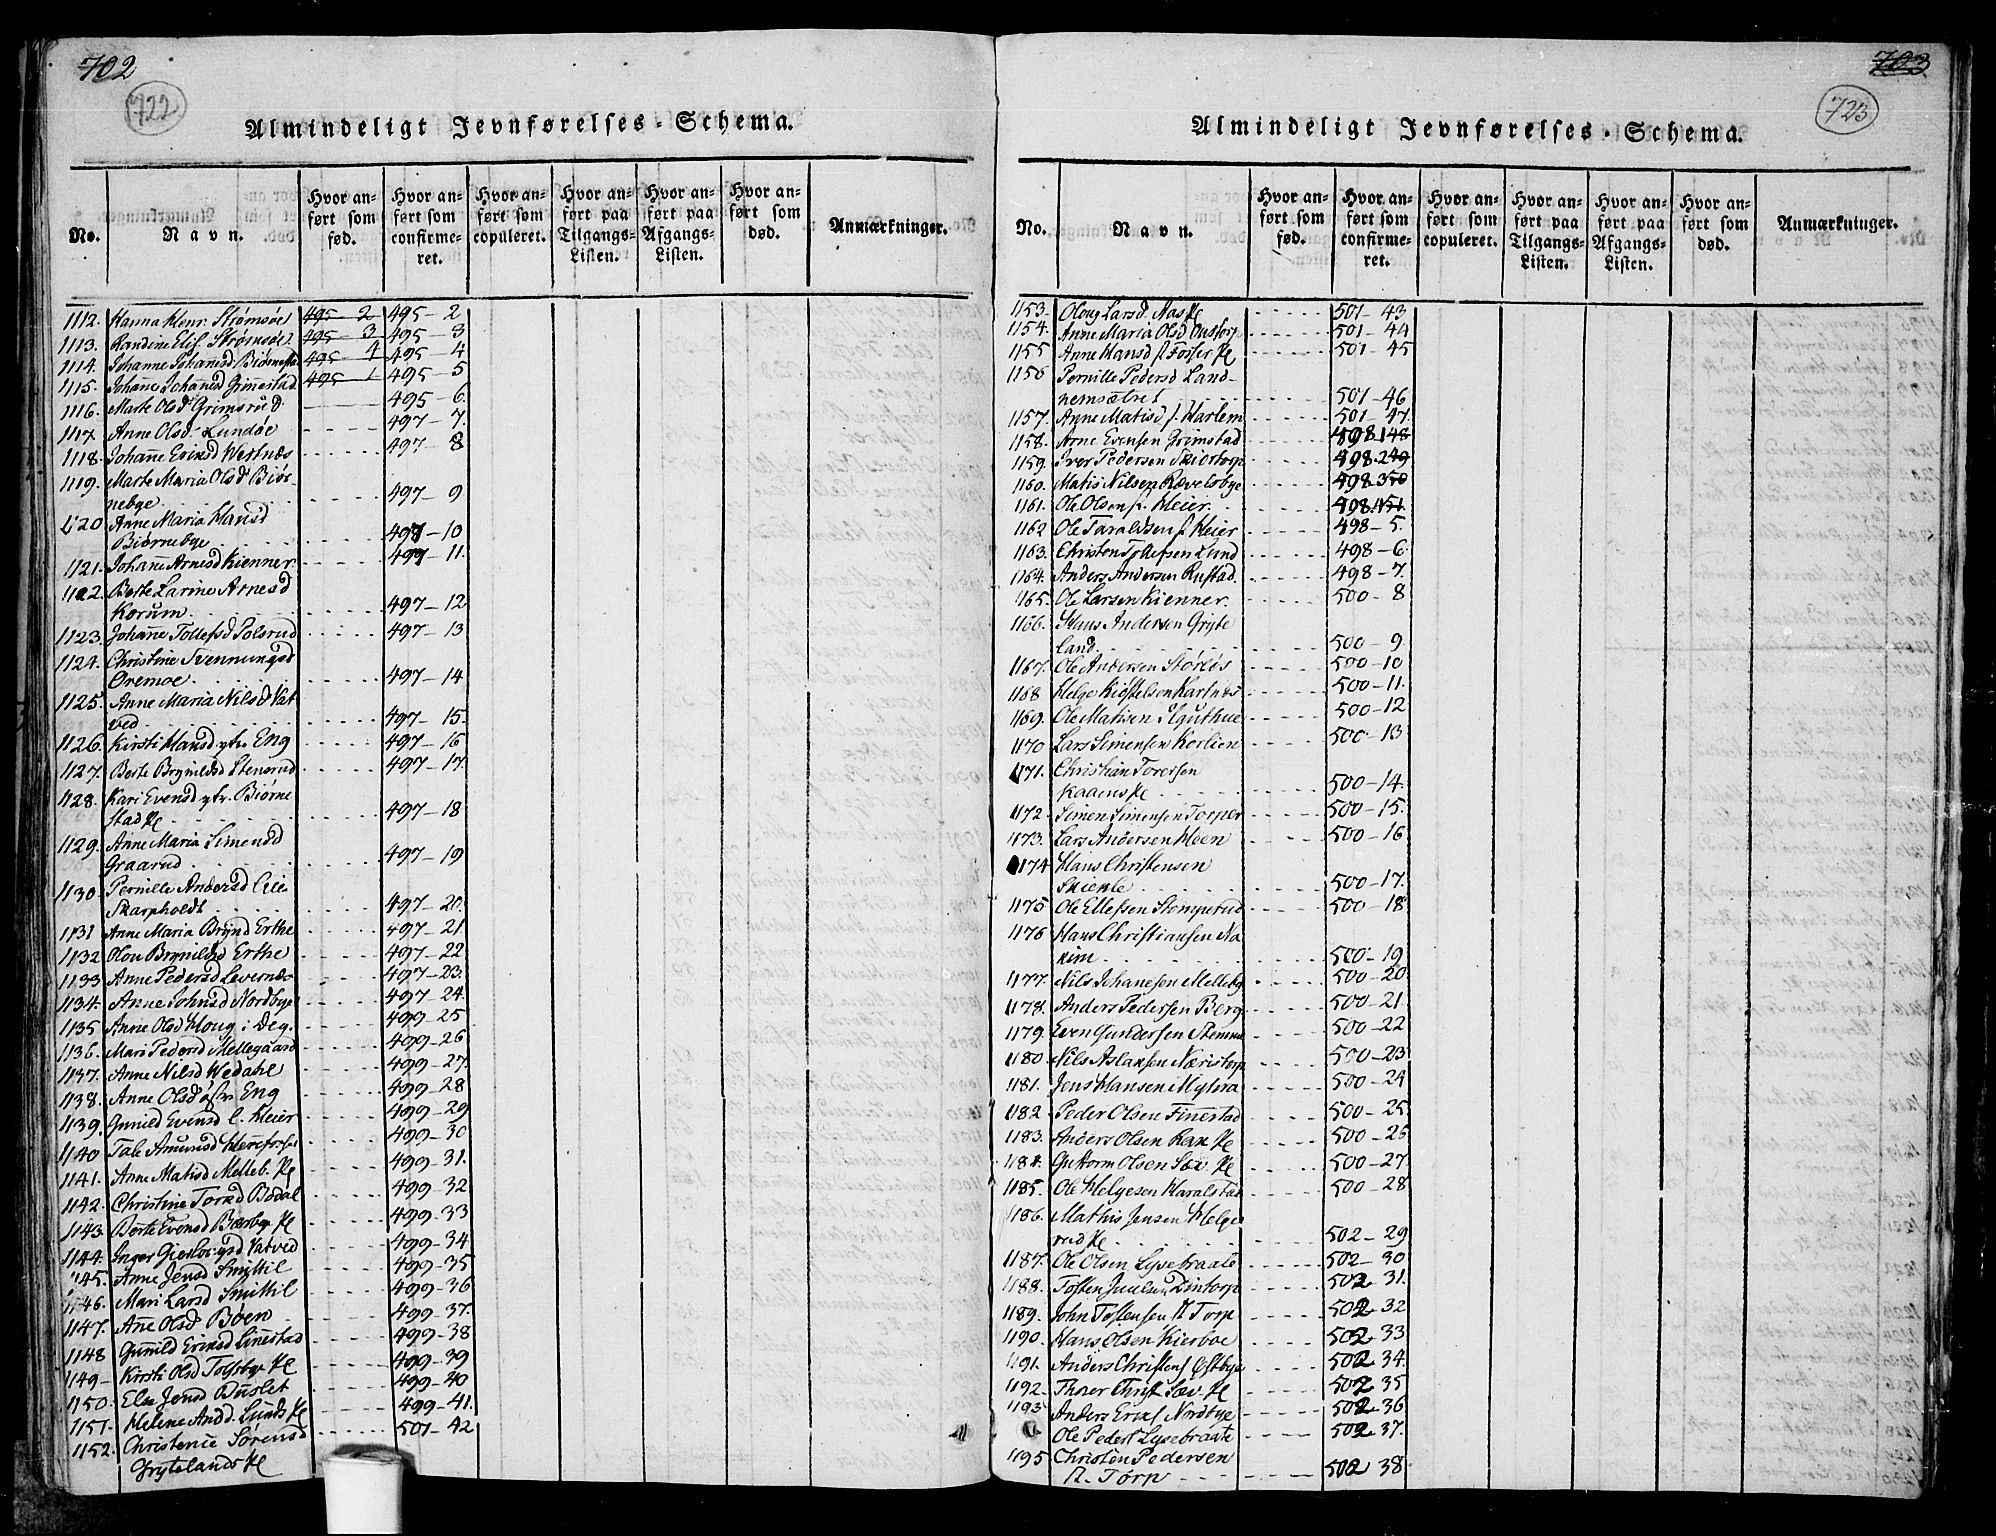 702
722
Almindeligt Jevnførelses-Schema.
No. Navn. Hvor anført som fød. Hvor anført som confirmeret. Hvor anført som copuleret. Hvor anført paa Tilgangs-Listen. Hvor anført paa Afgangs-Listen. Hvor anført som død. Anmærkninger.
1112. Hanna Henr. Strømsøe 495 2 495-2
1113. Randine Elis. Strømsøe 495 3 495-3
1114. Johanne Johanesd. Biørnestad 495 4 495-4
1115. Johane Johanesd Grimestad 495-1 495-5
1116. Marte Olsd Grimsrud 495-6
1117. Anne Olsd. Lundøe 497-7.
1118. Johane Ericksd Westnæs 497-8
1119. Marte Maria Olsd Biør-
nebye 497-9
1120 Anne Maria Hansd
Biørnebye 497-10
1121. Johane Arnesd Kienner 497-11.
1122. Berte Larine Arnesd
Korum 497-12
1123. Johane Tollefsd Polsrud 497-13
1124. Christine Svennungsd
Oremoe 497-14
1125. Anne Maria Nilsd Vat
ved 497-15.
1126. Kirsti Hansd ytr. Eng 497-16
1127. Berte Brynildsd Stensrud 497-17
1128. Kari Evensd ytr. Biørne
stad 497-18
1129. Anne Maria Simensd
Graarud 497-19
1130. Pernille Andersd Eie
Skarpholdt 497-20.
1131 Anne Maria Brynd Erthe 497-21
1132 Olou Brynildsd Erthe 497-22
1133 Anne Pedersd Levernæs 497-23.
1134. Anne Johnsd Nordbye 497-24.
1135 Anne Olsd Houg i Deg. 499-25
1136. Mari Pedersd Mellegaard 499-26
1137. Anne Nilsd Wedahl 499-27.
1138. Anne Olsd østr Eng 499-28
1139. Gunild Evensd l. Heier 499-29
1140 Tale Amundsd 499-30
1141. Anne Matisd Melleb. 499-31.
1142. Christine Torsd Bodal 499-32
1143 Berte Evensd Bærbye 499-33
1144. Inger Vatved 499-34
1145. Anne Jensd Smittil 499-35
1146. Mari Larsd Smithil 499-36
1147. Ane Olsd Bøen 499-37.
1148 Gunild Ericksd Linestad 499-38
1149- Kirsti Olsd Tolfsbye 499-39
1150. Else Jensd Buslet 499-40
1151. Helene Andd. Lunds 499-41.
1152. Christence Sørensd 501-42
Grytelands
703
723
Almindeligt Jevnførelses-Schema.
No. Navn. Hvor anført som fød. Hvor anført som confirmeret. Hvor anført som copuleret. Hvor anført paa Tilgangs-Listen. Hvor anført paa Afgangs-Listen. Hvor anført som død. Anmærkninger.
1153. Oloug Larsd. Aas 501-43
1154. Anne Maria Olsd Onstorp 501-44
1155 Anne Hansd Fosser 501-45
1156 Pernille Pedersd Land-
nemsætret 501-46
1157. Anne Matisd Harlem 501-47.
1158. Arne Evensen Grimstad 498.1
1159. Iver Pedersen Skiortorp 498.2
1160. Matis Nilsen Rævelsbye 498.3
1161. Ole Olsen Heier 498.
1162 Ole Taraldsen Heier 498-5.
1163. Christen Tollefsen Lund 498-6
1164. Anders Andersen Rustad. 498-7.
1165. Ole Larsen Kienner. 500-8
1166. Hans Andersen Gryte
land 500-9
1167. Ole Andersen Størløs 500-10
1168 Helge Kiøstelsen Kartnes 500-11.
1169. Ole Matisen 500-12
1170 Lars Simensen Korlien 500-13
1171. Christian Toresen
Kaaens 500-14.
1172- Simen Simensen Torper 500-15.
1173. Lars Andersen Hoen 500-16
1174 Hans Christensen
Skiekle 500-17.
1175 Ole Ellefsen Stomperud 500-18
1176 Hans Christiansen Na
kim 500-19
1177. Nils Johanesen Mellebye 500-20
1178. Anders Pedersen Berg 500-21.
1179. Even Gundersen Stemme 500-22
1180. Nils Aslaksen Næristorp 500-23
1181. Jens Hansen Mytvra 500-24
1182. Peder Olsen Finestad 500-25
1183. Anders Olsen Rak 500-26
1184. Guttorm Olsen Sæv. 500-27
1185. Ole Helgesen Haralstad 500-28
1186. Mathis Jensen Helge
rud 502-29
1187. Ole Olsen Lysebraate 502-30
1188. Tosten Juelsen Dintorp 502 31.
1189. John Tostensen N Torp 502 32
1190 Hans Olsen Kierboe 502 33
1191. Anders Christens Østbye 502 34.
1192- Thorer Christ Sæv. 502 35
1193- Anders Ericks Nordbye 502 36
Ole Peders Lysebraate 502 37.
1195 Christen Pedersen
N. Torp 502 38